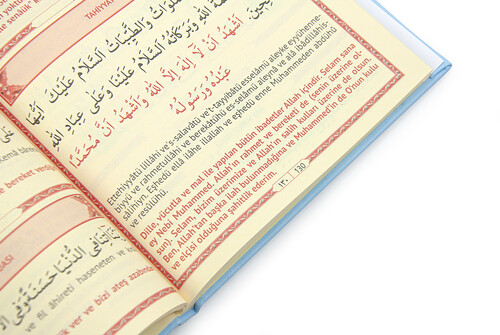 TAHİYYA
لَوَاتُ وَالطَّيِّبَاتُ اَلسَّلَامُ عَلَيْكَ اَيُّهَا
اللهِ وَبَرَكَاتُهُ اَلسَّلَامُ عَلَيْنَا وَعَلٰى عِبَادِ اللهِ
لِحِينَ اَشْهَدُ اَنْ لَا اِلٰهَ اِلَّا اللهُ وَاَشْهَدُ اَنَّ مُحَمَّدًا
عَبْدُهُ وَرَسُولُهُ
Ettehiyyâtü lillâhi ve's-salavâtü ve't-tayyibâtü esselâmü aleyke eyyühenne-
biyyü ve rahmetullâhi ve berekâtühû es-selâmü aleynâ ve alâ ibâdillâhis-
sâlihiyn. Eşhedü ellâ ilâhe illallah ve eşhedü enne Muhammeden abdühû
ve resûlühü.
Dille, vücutla ve mal ile yapılan bütün ibadetler Allah içindir. Selam sana
ey Nebi Muhammed. Allah'ın rahmet ve bereketi de senin üzerine ol-
sun). Selam, bizim üzerimize ve Allah'ın salih kulları üzerine de olsun.
Ben, Allah'tan başka ilah bulunmadığına ve Muhammed'in de O'nun kulu
ve elçisi olduğuna şahitlik ederim.
١٣٠ 130
الدُّنْيَا حَسَنَةً وَفِى
ve fil âhireti haseneten ve
ik ver ve bizi ateş azabında